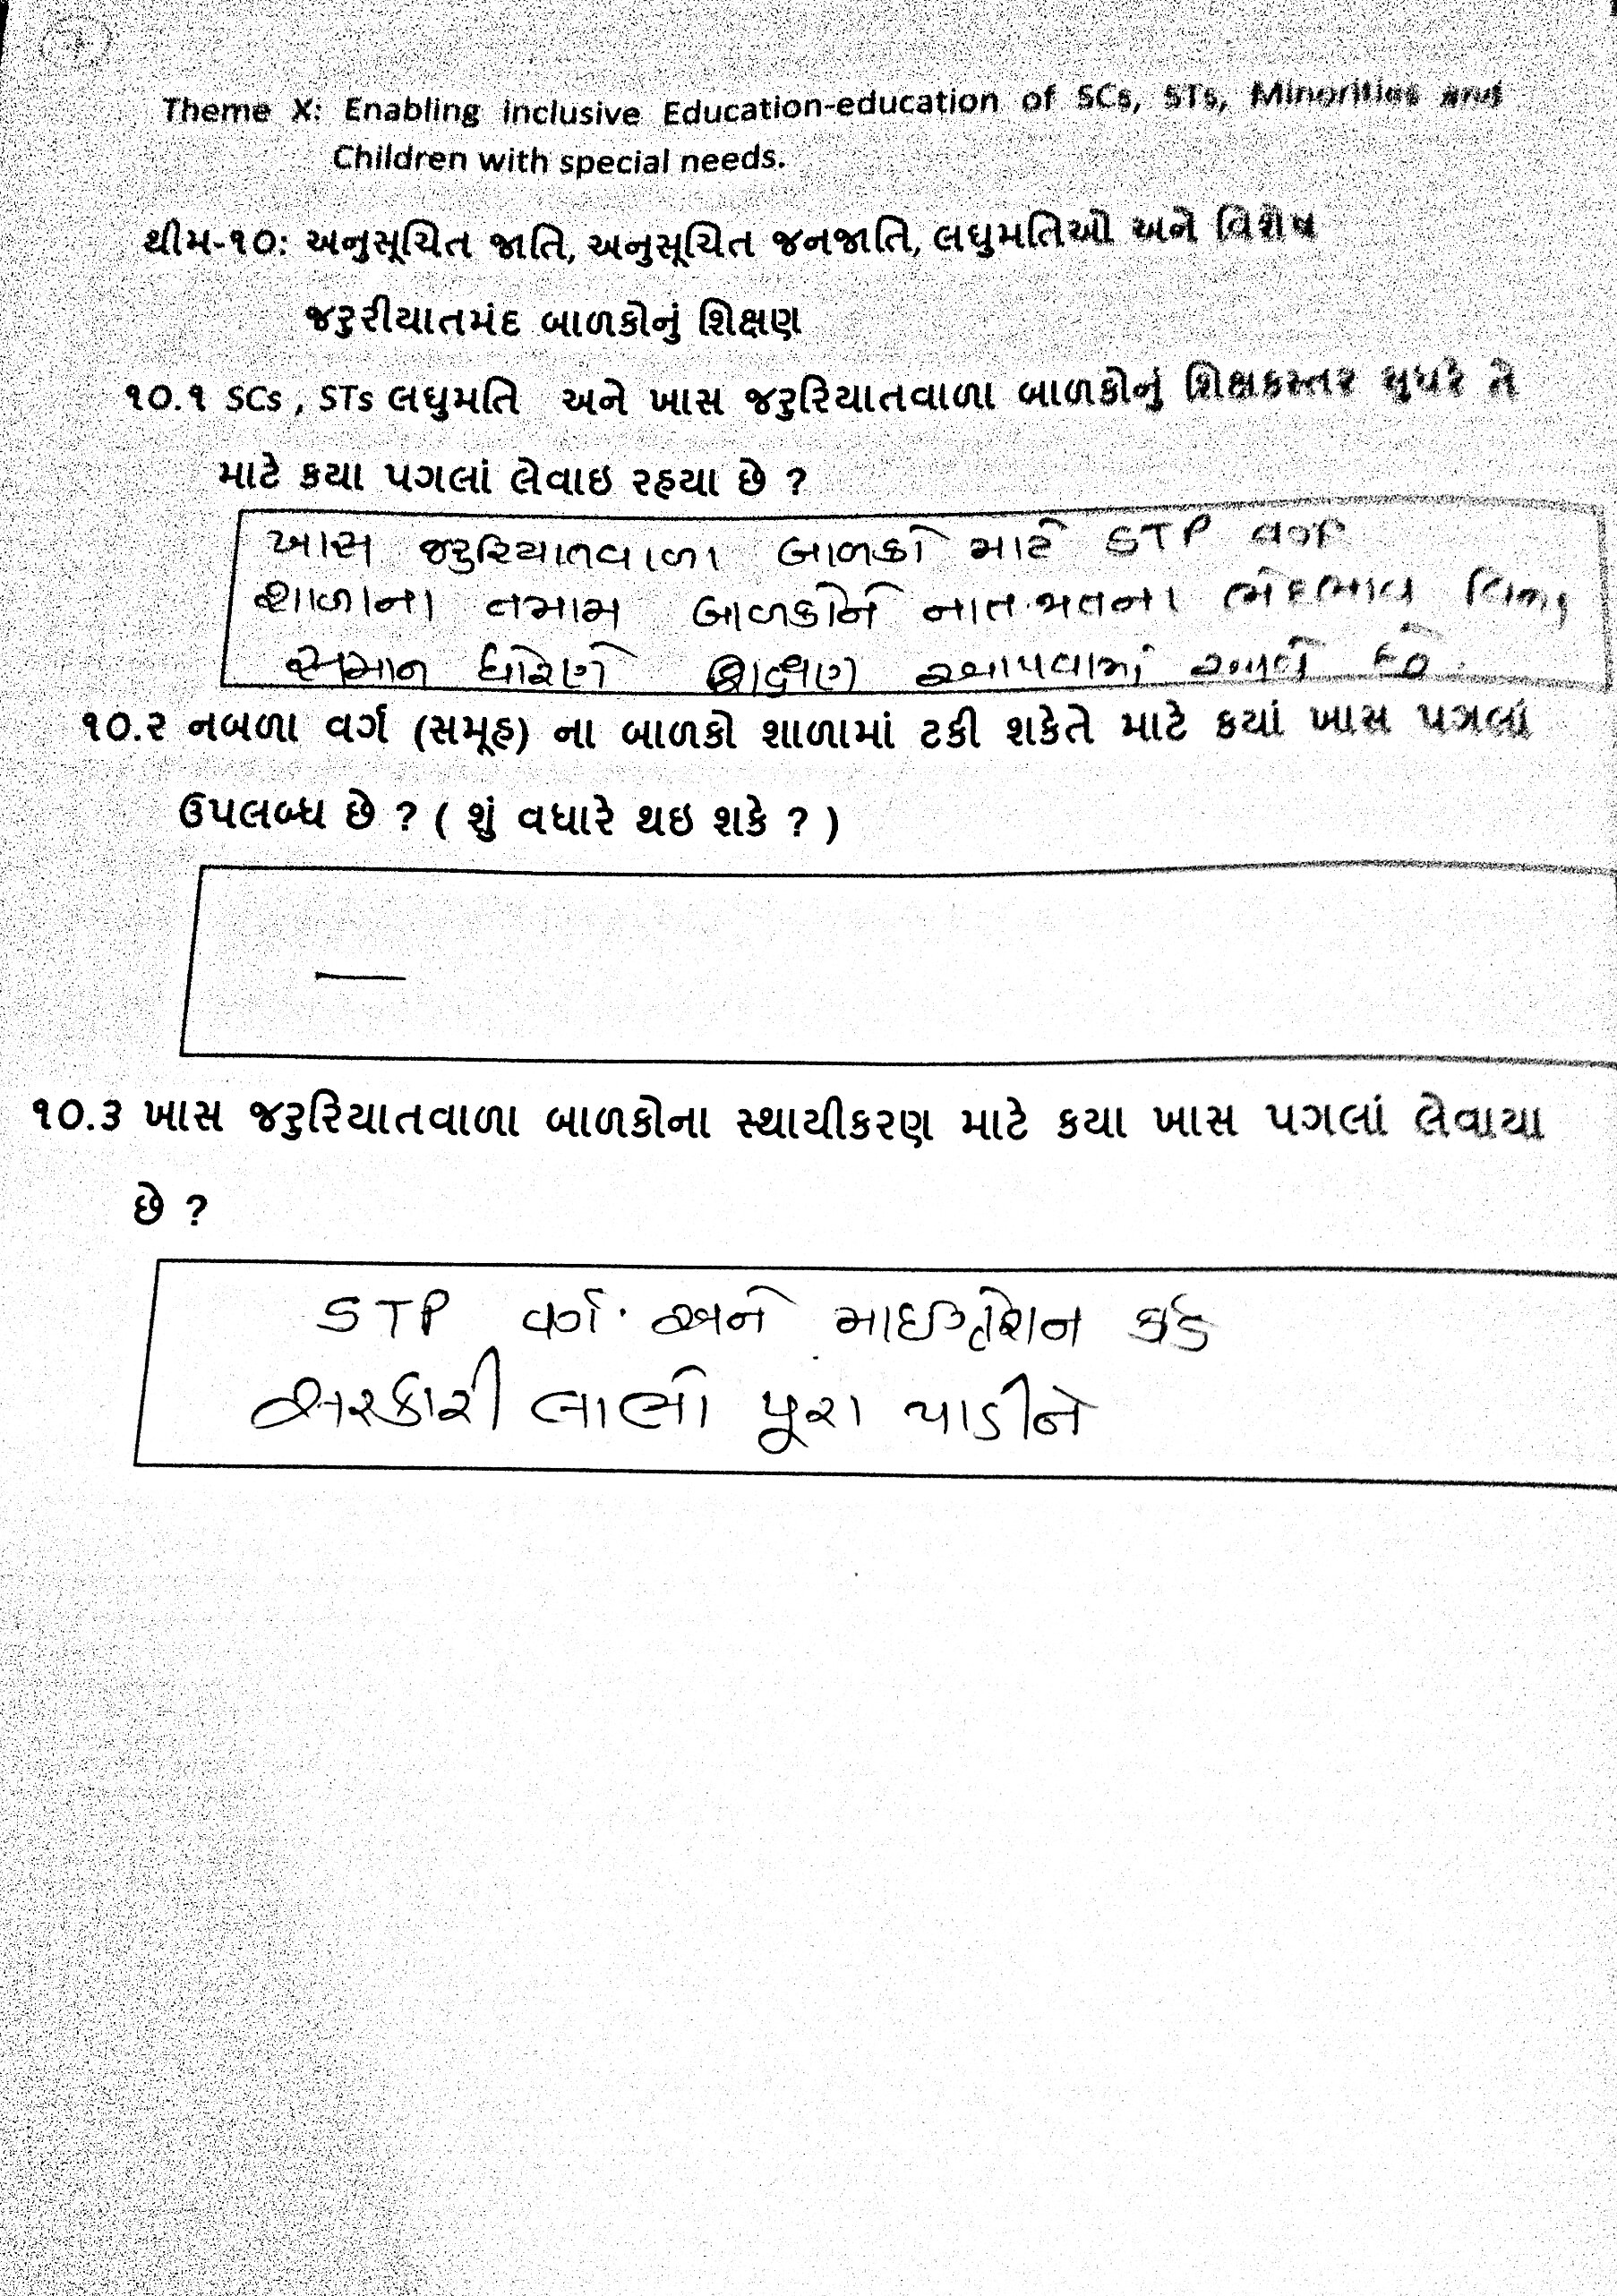 Theme X: Enabling inclusive Education-education of SCs, STs, Minorities and
Children with special needs.
થીમ-૧૦: અનુસૂચિત જાતિ, અનુસૂચિત જનજાતિ, લઘુમતિઓ અને વિશેષ
જરુરીયાતમંદ બાળકોનું શિક્ષણ
૧૦.૧ SCs , STs લઘુમતિ અને ખાસ જરુરિયાતવાળા બાળકોનું શિક્ષકસ્તર સુધરે તે
માટે કયા પગલાં લેવાઇ રહયા છે ?
ખાસ જરુરિયાતવાળા બાળકો માટે STP વર્ગ
શાળાના તમામ બાળકોને નાત જાતના ભેદભાવ વિના
સમાન ધોરણે શિક્ષણ આપવામાં આવે છે.
૧૦.૨ નબળા વર્ગ (સમૂહ) ના બાળકો શાળામાં ટકી શકેતે માટે કયાં ખાસ પગલાં
ઉપલબ્ધ છે ? ( શું વધારે થઇ શકે ? )
—
૧૦.૩ ખાસ જરુરિયાતવાળા બાળકોના સ્થાયીકરણ માટે કયા ખાસ પગલાં લેવાયા
છે ?
STP વર્ગ. અને માઈગ્રેશન કાર્ડ
સરકારી લાભો પૂરા પાડીને